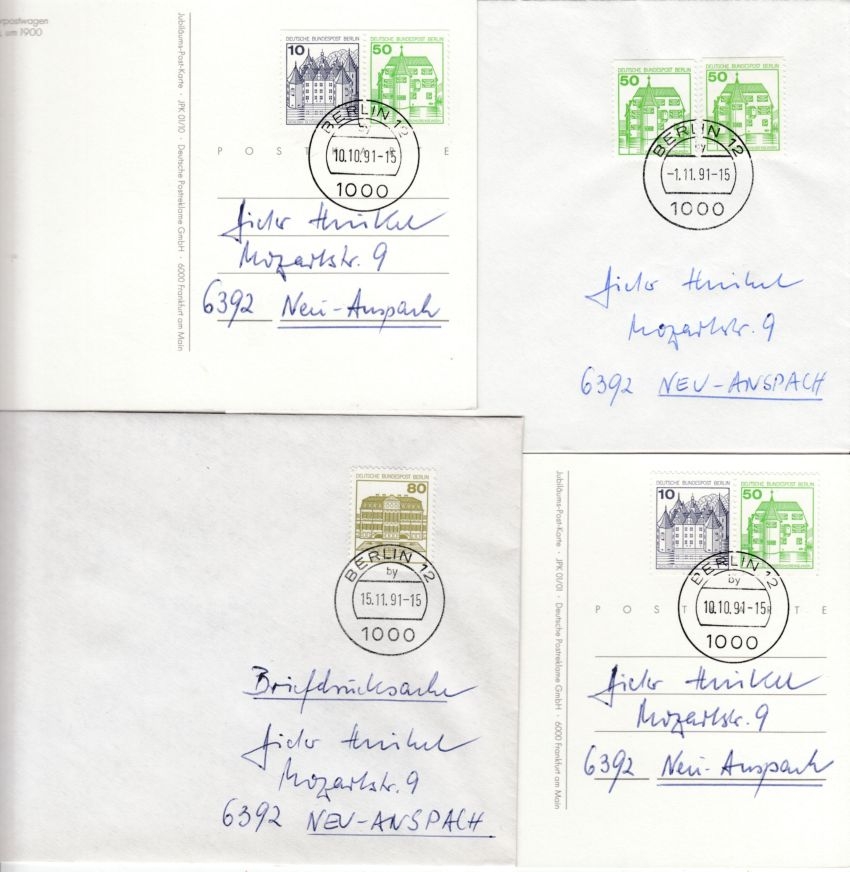 rpostwagen
um 1900
Jubiläums-Post-Karte · JPK 01/10 · Deutsche Postreklame GmbH · 6000 Frankfurt am Main
DEUTSCHE BUNDESPOST BERLIN
10
DEUTSCHE BUNDESPOST BERLIN
50
BERLIN 12
by
10.10.91-15
1000
POST TE
Dieter Hinkel
Mozartstr. 9
6392 Neu-Anspach
DEUTSCHE BUNDESPOST BERLIN
50
DEUTSCHE BUNDESPOST BERLIN
50
BERLIN 12
by
-1.11.91-15
1000
Dieter Hinkel
Mozartstr. 9
6392 NEU-ANSPACH
DEUTSCHE BUNDESPOST BERLIN
80
BERLIN 12
by
15.11.91-15
1000
Briefdrucksache
Dieter Hinkel
Mozartstr. 9
6392 NEU-ANSPACH.
Jubiläums-Post-Karte · JPK 01/01 · Deutsche Postreklame GmbH · 6000 Frankfurt am Main
DEUTSCHE BUNDESPOST BERLIN
10
DEUTSCHE BUNDESPOST BERLIN
50
BERLIN 12
by
10.10.91-15
1000
POST TE
Dieter Hinkel
Mozartstr. 9
6392 Neu-Anspach